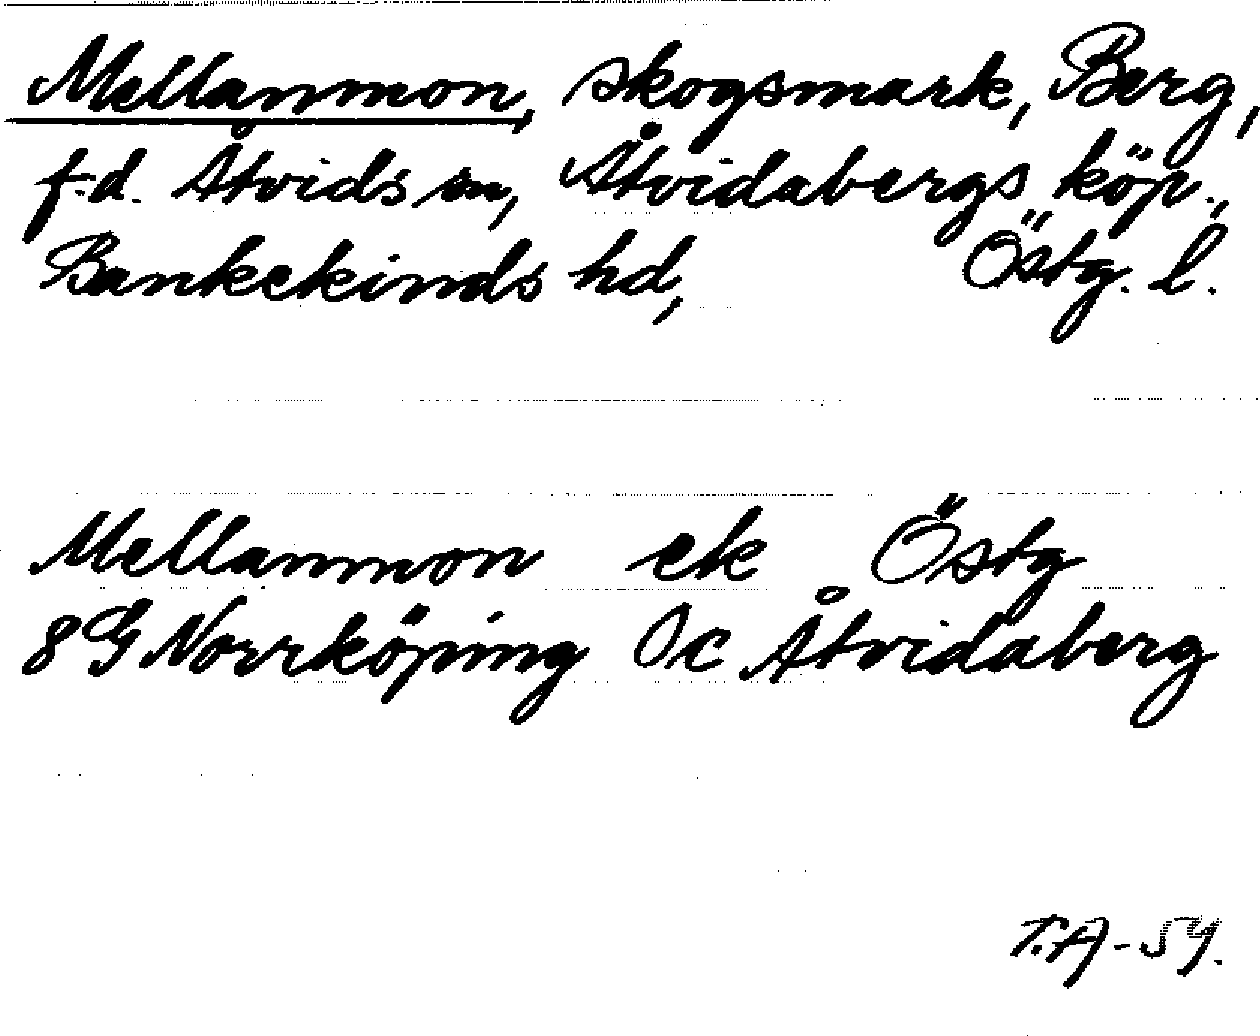 Mellanmon, skogsmark, Berg,
f.d. Åtvids sn, Åtvidabergs köp.,
Bankekinds hd, Östg. l.
Mellanmon ek Östg
8G Norrköping Oc Åtvidaberg
T.A-54.